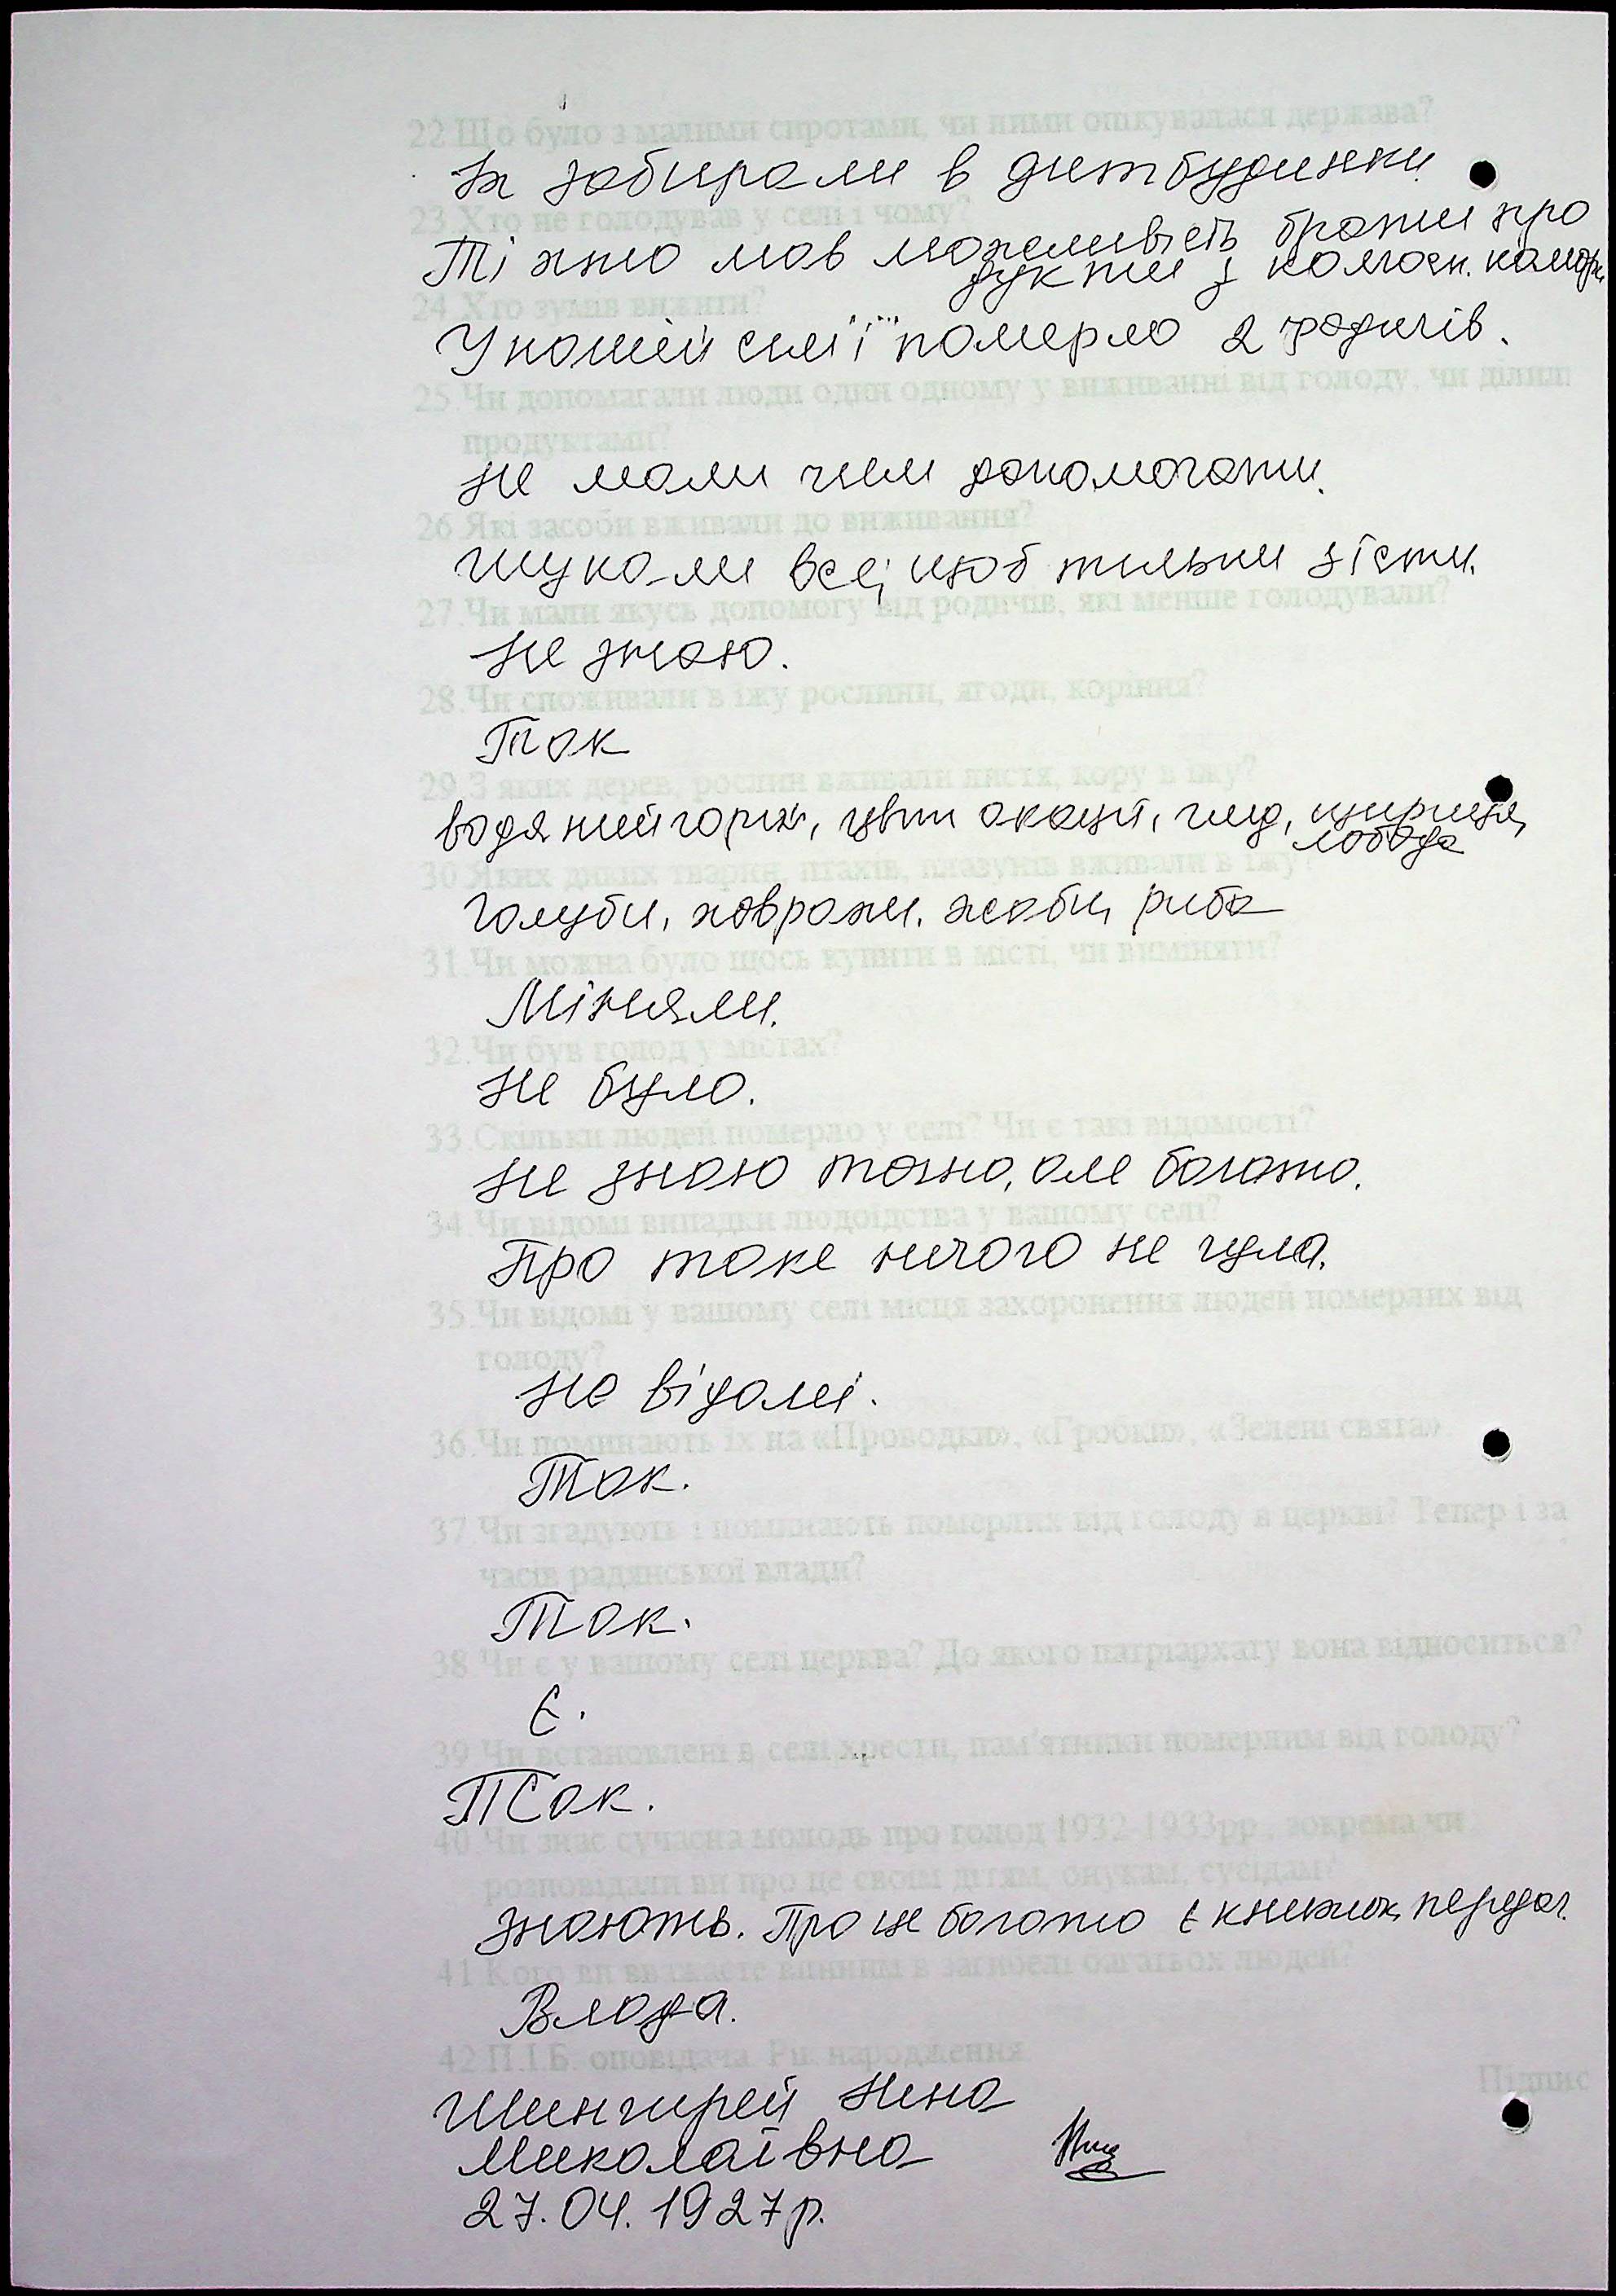 22.Що було з малими сиротами, чи ними опікувалася держава?
Їх забирали в дитбудинки.
23.Хто не голодував у селі і чому?
Ті хто мав можливість брати про
дукти з колгосп. комори
24.Хто зумів вижити?
У нашій сім'ї померло 2 родичів.
25.Чи допомагали люди один одному у виживанні від голоду, чи ділил
продуктами?
Не мали чим допомогати.
26.Які засоби вживали до виживання?
Шукали все, щоб тильки з'їсти.
27.Чи мали якусь допомогу від родичів, які менше голодували?
Не знаю.
28.Чи споживали в їжу рослини, ягоди, коріння?
Так
29.З яких дерев, рослин вживали листя, кору в їжу?
водяний горіх, цвіт акації, глід, щириця,
лобода
30.Яких диких тварин, птахів, плазунів вживали в їжу?
Голуби, ховрахи, жаби, риба
31.Чи можна було щось купити в місті, чи виміняти?
Міняли.
32.Чи був голод у містах?
Не було.
33.Скільки людей померло у селі? Чи є такі відомості?
Не знаю точно, але богато.
34.Чи відомі випадки людоїдства у вашому селі?
Про таке ничого не чула.
35.Чи відомі у вашому селі місця захоронення людей померлих від
голоду?
Не відомі.
36.Чи поминають їх на «Проводки», «Гробки», «Зелені свята»
Так.
37.Чи згадують і поминають померлих від голоду в церкві? Тепер і за
часів радянської влади?
Так.
38.Чи є у вашому селі церква? До якого патріархату вона відноситься?
Є.
39.Чи встановлені в селі хрести, пам'ятники померлим від голоду?
Так.
40.Чи знає сучасна молодь про голод 1932-1933рр., зокрема чи
розповідали ви про це своїм дітям, онукам, сусідам?
Знають. Про це богато є книжок, передач.
41.Кого ви вважаєте винним в загибелі багатьох людей?
Влада.
42.П.І.Б. оповідача. Рік народження.
Підпис
Шингирей Нина
Миколаївна
27.04.1927р.